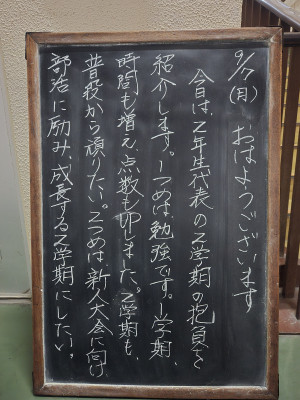 9/7(月) おはようございます
今日は、2年生代表の2学期の抱負を
紹介します。1つめは、勉強です。1学期、
時間も増え、点数も伸びました。2学期も、
普段から頑りたい。2つめは、新人大会に向け
部活に励み、成長する2学期にしたい。